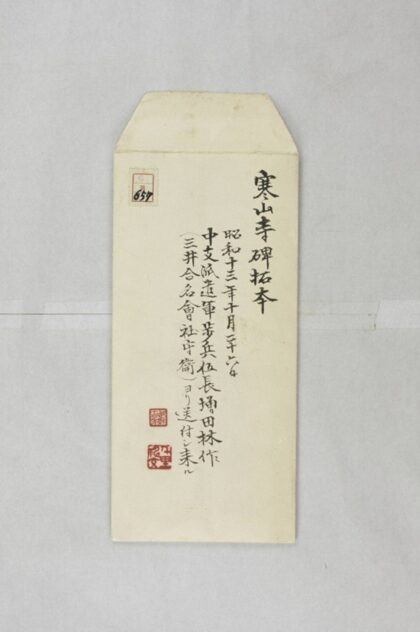 寒山寺碑拓本
昭和十三年十月二十六日
中支派遣軍歩兵伍長増田林作
(三井合名會社守衛)ヨリ送付シ来ル
657